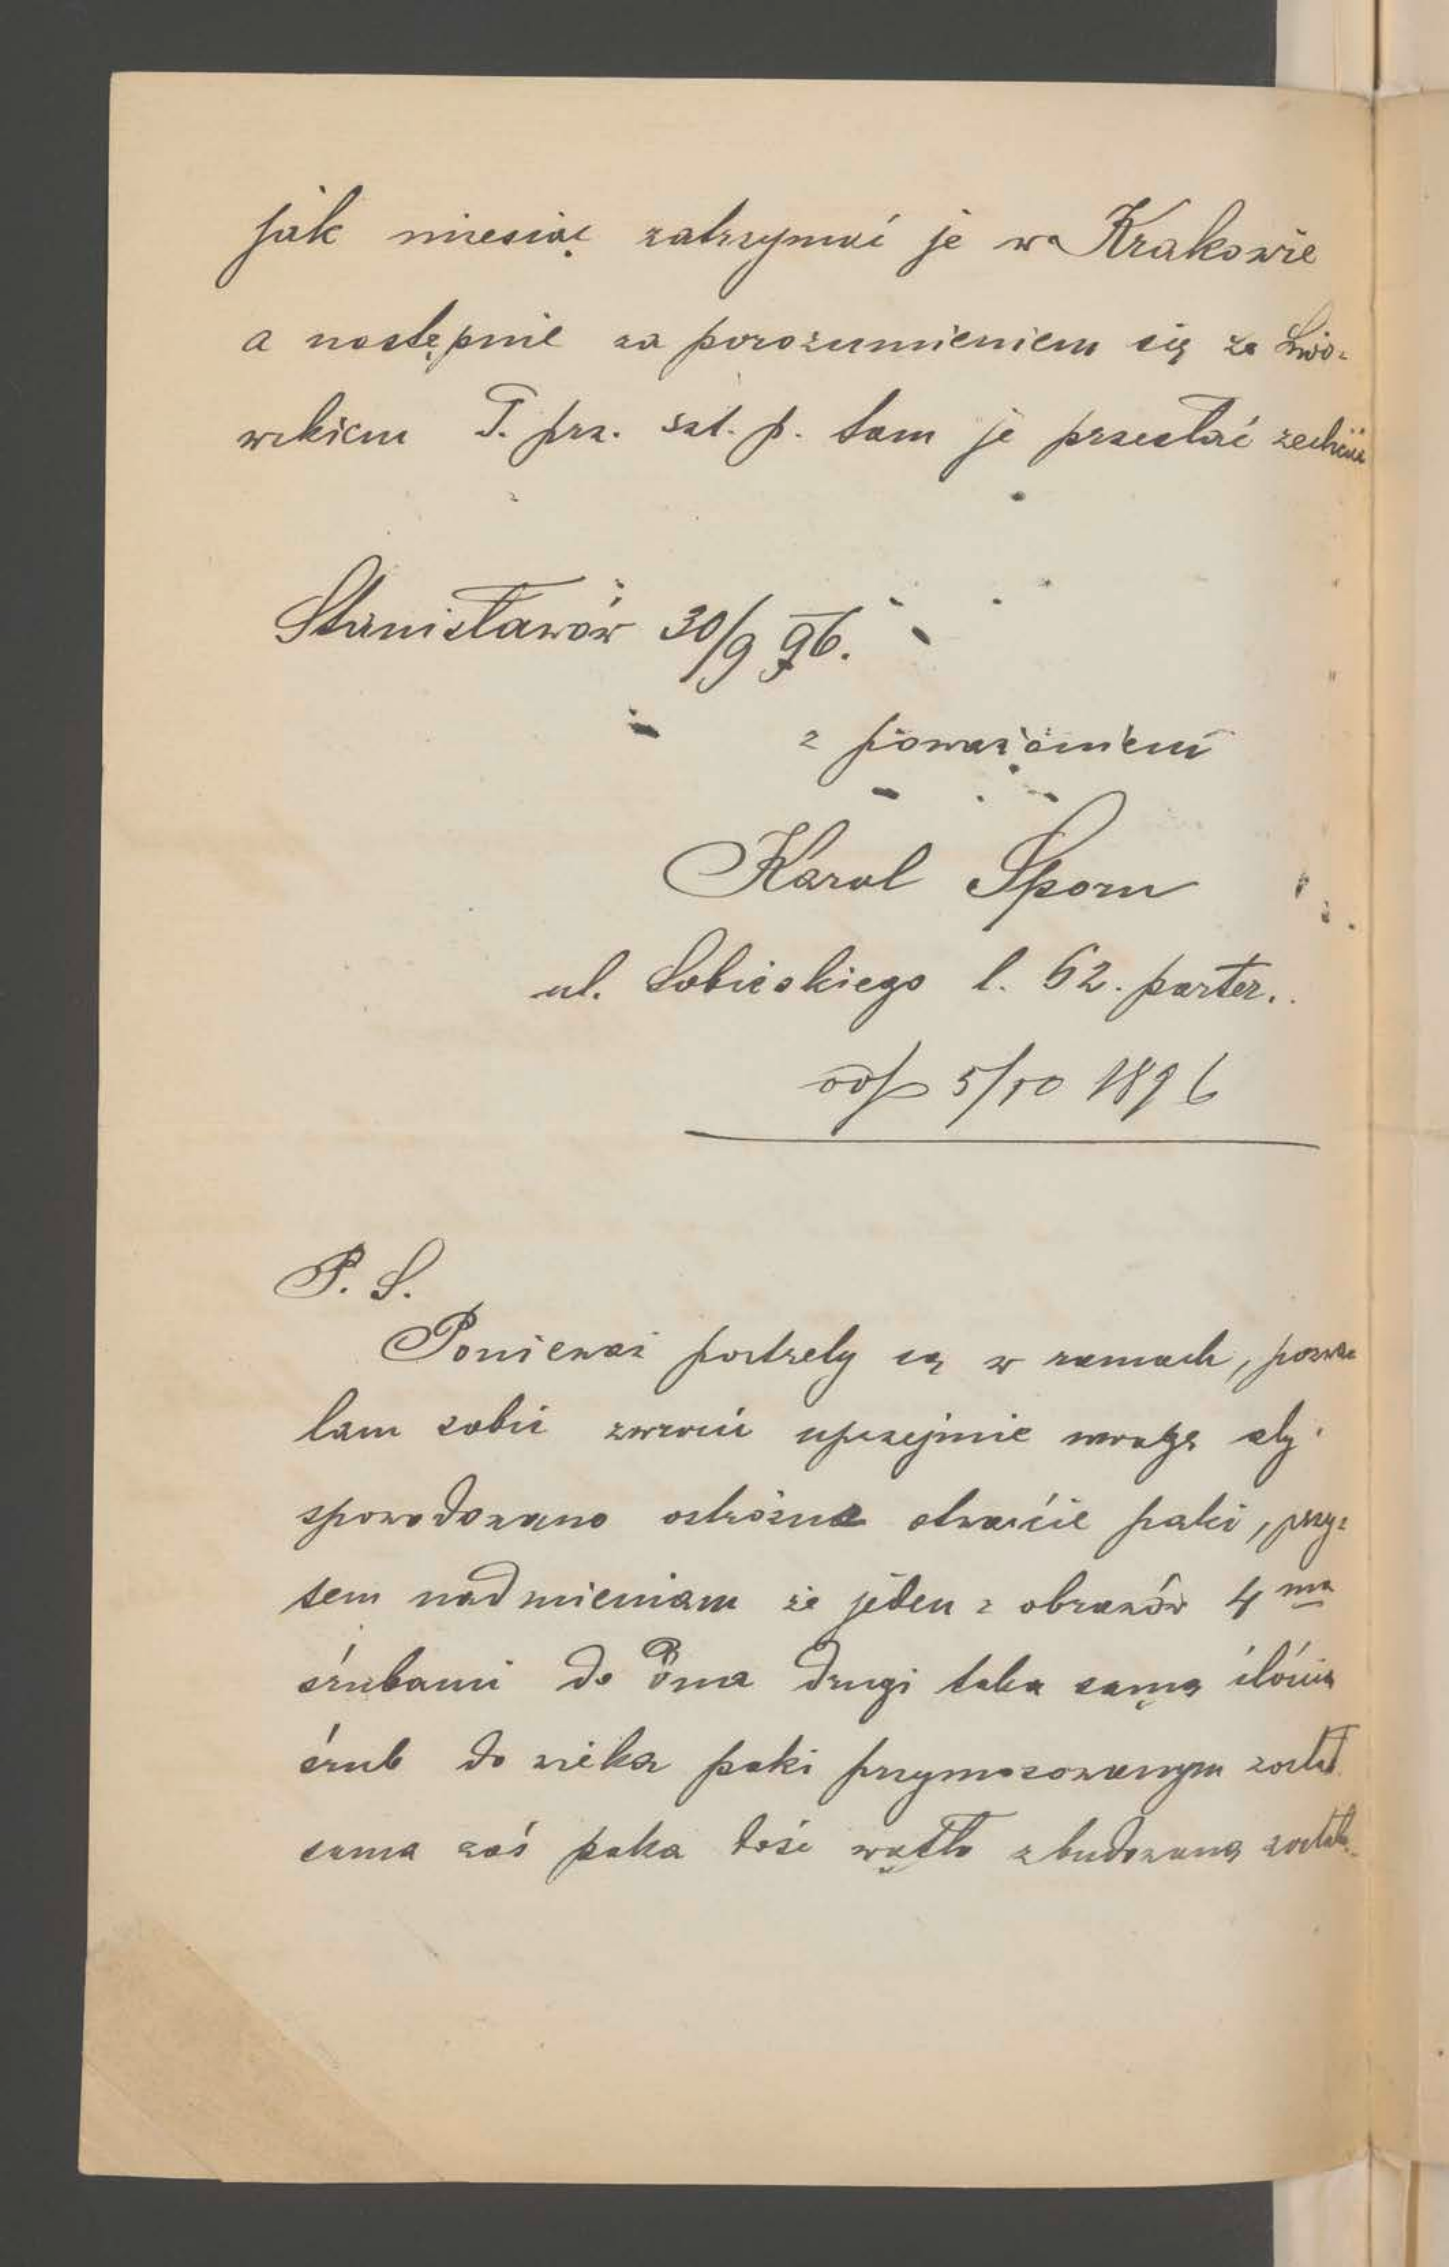 jak miesiąc zatrzymać je w Krakowie
a następnie za porozumieniem się ze Lwo-
wskiem T. prz. szt. p. tam je przesłać zechcie
Stanisławów 30/9 96.
z poważaniem
Karol Sporn
ul. Sobieskiego l. 62. parter.
odp 5/10 1896
P. S.
Ponieważ portrety są w ramach, pozwa
lam sobie zwrócić uprzejmie uwagę aby
spowodowano ostrożne otwarcie paki, przy-
tem nadmieniam że jeden z obrazów 4 ma
śrubami do dna drugi taką samą ilością
śrub do wieka paki przymocowanym został
sama zaś paka dość wątło zbudowaną została.